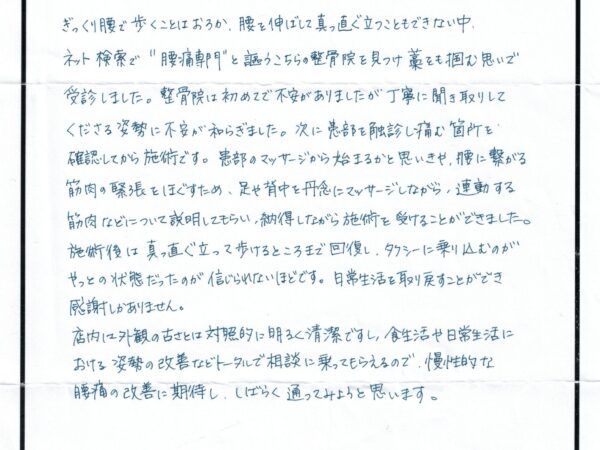 ぎっくり腰で歩くことはおろか、腰を伸ばして真っ直ぐ立つこともできない中、
ネット検索で"腰痛専門"と謳うこちらの整骨院を見つけ藁をも掴む思いで
受診しました。整骨院は初めてで不安がありましたが丁寧に聞き取りして
くださる姿勢に不安が和らぎました。次に患部を触診し痛む箇所を
確認してから施術です。患部のマッサージから始まるかと思いきや、腰に繋がる
筋肉の緊張をほぐすため、足や背中を丹念にマッサージしながら、連動する
筋肉などについて説明してもらい、納得しながら施術を受けることができました。
施術後は真っ直ぐ立って歩けるところまで回復し、タクシーに乗り込むのが
やっとの状態だったのが信じられないほどです。日常生活を取り戻すことができ
感謝しかありません。
店内は外観の古さとは対照的に明るく清潔ですし、食生活や日常生活に
おける姿勢の改善などトータルで相談に乗ってもらえるので、慢性的な
腰痛の改善に期待し、しばらく通ってみようと思います。